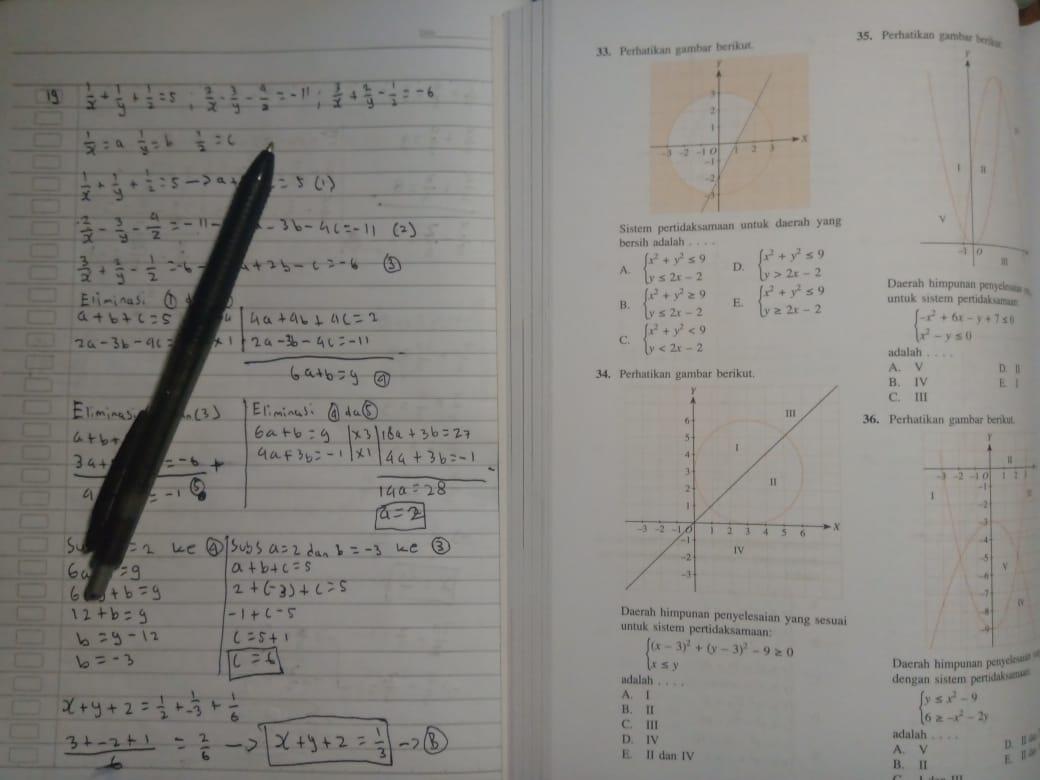 19 1/x + 1/y + 1/z = 5 ; 2/x - 3/y - 4/z = -11 ; 3/x + 2/y - 1/z = -6
1/x = a 1/y = b 1/z = c
1/x + 1/y + 1/z = 5 -> a+ = 5 (1)
2/x - 3/y - 4/z = -11 - 3b - 4c = -11 (2)
3/x + 2/y - 1/z = -6 + 2b - c = -6 ③
Eliminasi ①
a + b + c = 5 4a + 4b + 4c = 2
2a - 3b - 4c x 1 2a - 3b - 4c = -11
6a + b = 9 ④
Eliminasi (3)
a + b +
3a + = -6 +
= -1 ⑤
Eliminasi ④ da ⑤
6a + b = 9 | x3 | 18a + 3b = 27
4a + 3b = -1 | x1 | 4a + 3b = -1 -
14a = 28
a = 2
= 2 ke ④
= 9
+ b = 9
12 + b = 9
b = 9 - 12
b = -3
Subs a = 2 dan b = -3 ke ③
a + b + c = 5
2 + (-3) + c = 5
-1 + c = 5
c = 5 + 1
c = 6
x + y + z = 1/2 + 1/-3 + 1/6
3 + -2 + 1 / 6 = 2/6 -> x + y + z = 1/3 -> B
33. Perhatikan gambar berikut.
Y
3
2
1
-3 -2 -1 O 1 2 3 X
-1
-2
-3
Sistem pertidaksamaan untuk daerah yang
bersih adalah . . . .
A. { x² + y² ≤ 9
y ≤ 2x - 2
B. { x² + y² ≥ 9
y ≤ 2x - 2
C. { x² + y² < 9
y < 2x - 2
D. { x² + y² ≤ 9
y > 2x - 2
E. { x² + y² ≤ 9
y ≥ 2x - 2
34. Perhatikan gambar berikut.
Y
III
6
5
4
3
2
1
I
II
-3 -2 -1 0 1 2 3 4 5 6 X
-1
-2
-3
IV
Daerah himpunan penyelesaian yang sesuai
untuk sistem pertidaksamaan:
{ (x - 3)² + (y - 3)² - 9 ≥ 0
x ≤ y
adalah . . . .
A. I
B. II
C. III
D. IV
E. II dan IV
35. Perhatikan gambar berikut.
Y
I II
V
-1 O
III
Daerah himpunan penyelesaian
untuk sistem pertidaksamaan
{ -x² + 6x - y + 7 ≤ 0
x² - y ≤ 0
adalah . . . .
A. V
B. IV
C. III
D. II
E. I
36. Perhatikan gambar berikut.
Y
II
-3 -2 -1 O 1 2 3
I
-1
-2
-3
-4
-5
-6
-7
-8
-9
V
IV
Daerah himpunan penyelesaian
dengan sistem pertidaksamaan
{ y ≤ x² - 9
6 ≥ -x² - 2y
adalah . . . .
A. V
B. II
D. II
E. II